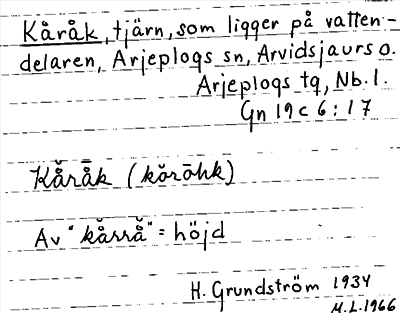 Kåråk, tjärn, som ligger på vatten-
delaren, Arjeplogs sn, Arvidsjaurs o.
Arjeplogs tg, Nb. l.
Gn 19 c 6 : 17
Kå̆rā̊k (kŏrōhk)
Av "kå̆rrå̆" = höjd
H. Grundström 1934
M.L. 1966